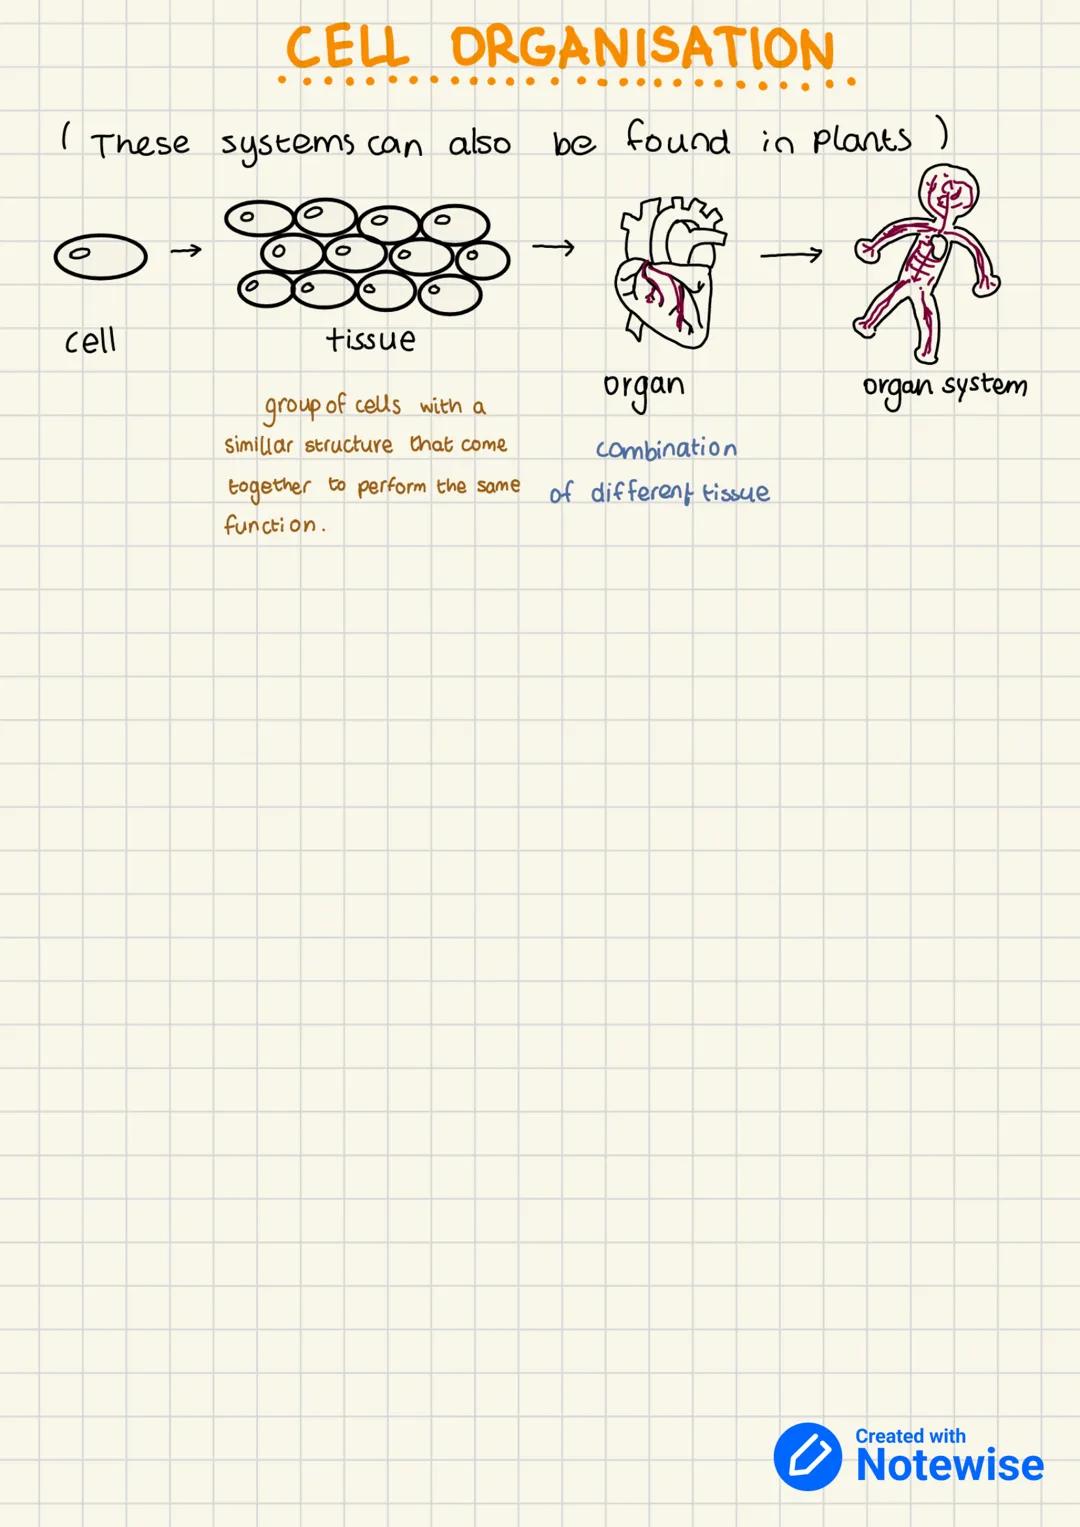 CELL ORGANISATION
( These systems can also be found in plants )
cell
tissue
organ
organ system
group of cells with a
simillar structure that come
together to perform the same
function.
combination
of different tissue
Created with
Notewise